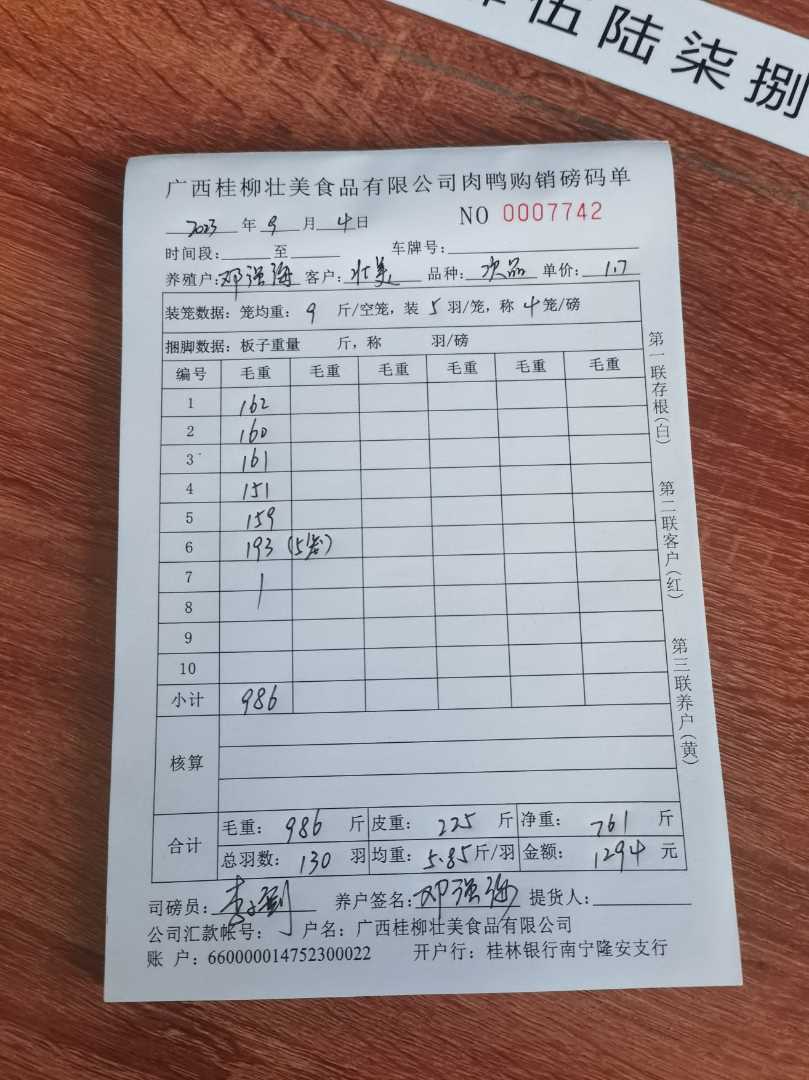 伍陆柒捌
广西桂柳壮美食品有限公司肉鸭购销磅码单
2023年9月4日 NO 0007742
时间段: 至 车牌号:
养殖户: 邓强海 客户: 壮美 品种: 次品 单价: 1.7
装笼数据: 笼均重: 9 斤/空笼, 装 5 羽/笼, 称 4 笼/磅
捆脚数据: 板子重量 斤, 称 羽/磅
编号 毛重 毛重 毛重 毛重 毛重 毛重
1 162
2 160
3 161
4 151
5 159
6 193 (5笼)
7
8
9
10
小计 986
核算
合计 毛重: 986 斤 皮重: 225 斤 净重: 761 斤
总羽数: 130 羽 均重: 5.85 斤/羽 金额: 1294 元
司磅员: 养户签名: 邓强海 提货人:
公司汇款帐号: 户名: 广西桂柳壮美食品有限公司
账 户: 660000014752300022 开户行: 桂林银行南宁隆安支行
第一联存根(白)
第二联客户(红)
第三联养户(黄)